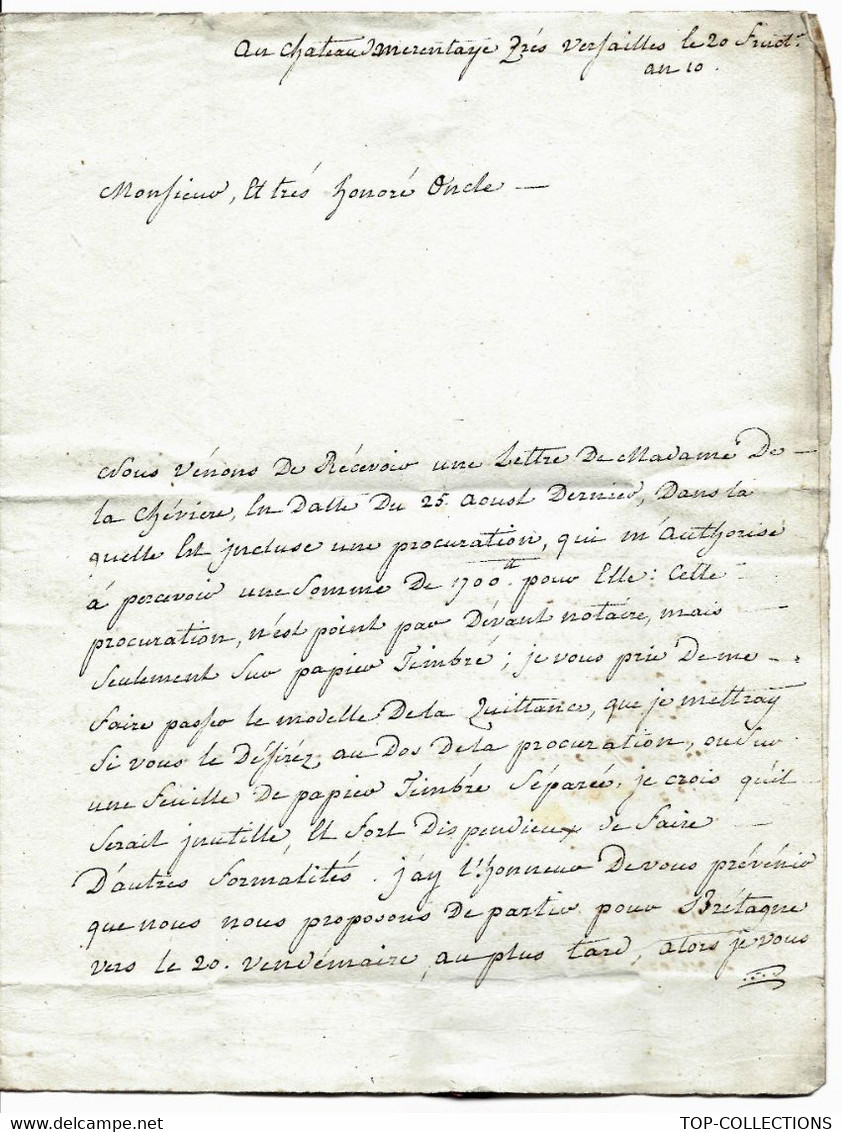 Au chateau Merentaye Près Versailles le 20 Fruct.r
an 10.
Monsieur, Et très honoré Oncle —
Nous vénons De Récevoir une Lettre De Madame De
la Chévière, En Datte Du 25 Aoust Dernier, Dans la
quelle Est incluse une procuration, qui m'Authorise
à percevoir une Somme De 1700tt pour Elle : Cette
procuration, n'est point par Dévant notaire, mais
Seulement Sur papier Timbré ; je vous prie De me
Faire passer le modelle De la Quittance, que je mettray
Si vous le Désiréz, au Dos De la procuration, ou Sur
une feuille De papier Timbré Séparée, je crois qu'il
Serait inutille, Et fort Dispendieux de Faire
D'autres Formalités. j'ay l'honneur De vous prévénir
que nous nous proposons De partir pour Brétagne
vers le 20. vendémaire, au plus tard, alors je vous
TOP-COLLECTIONS